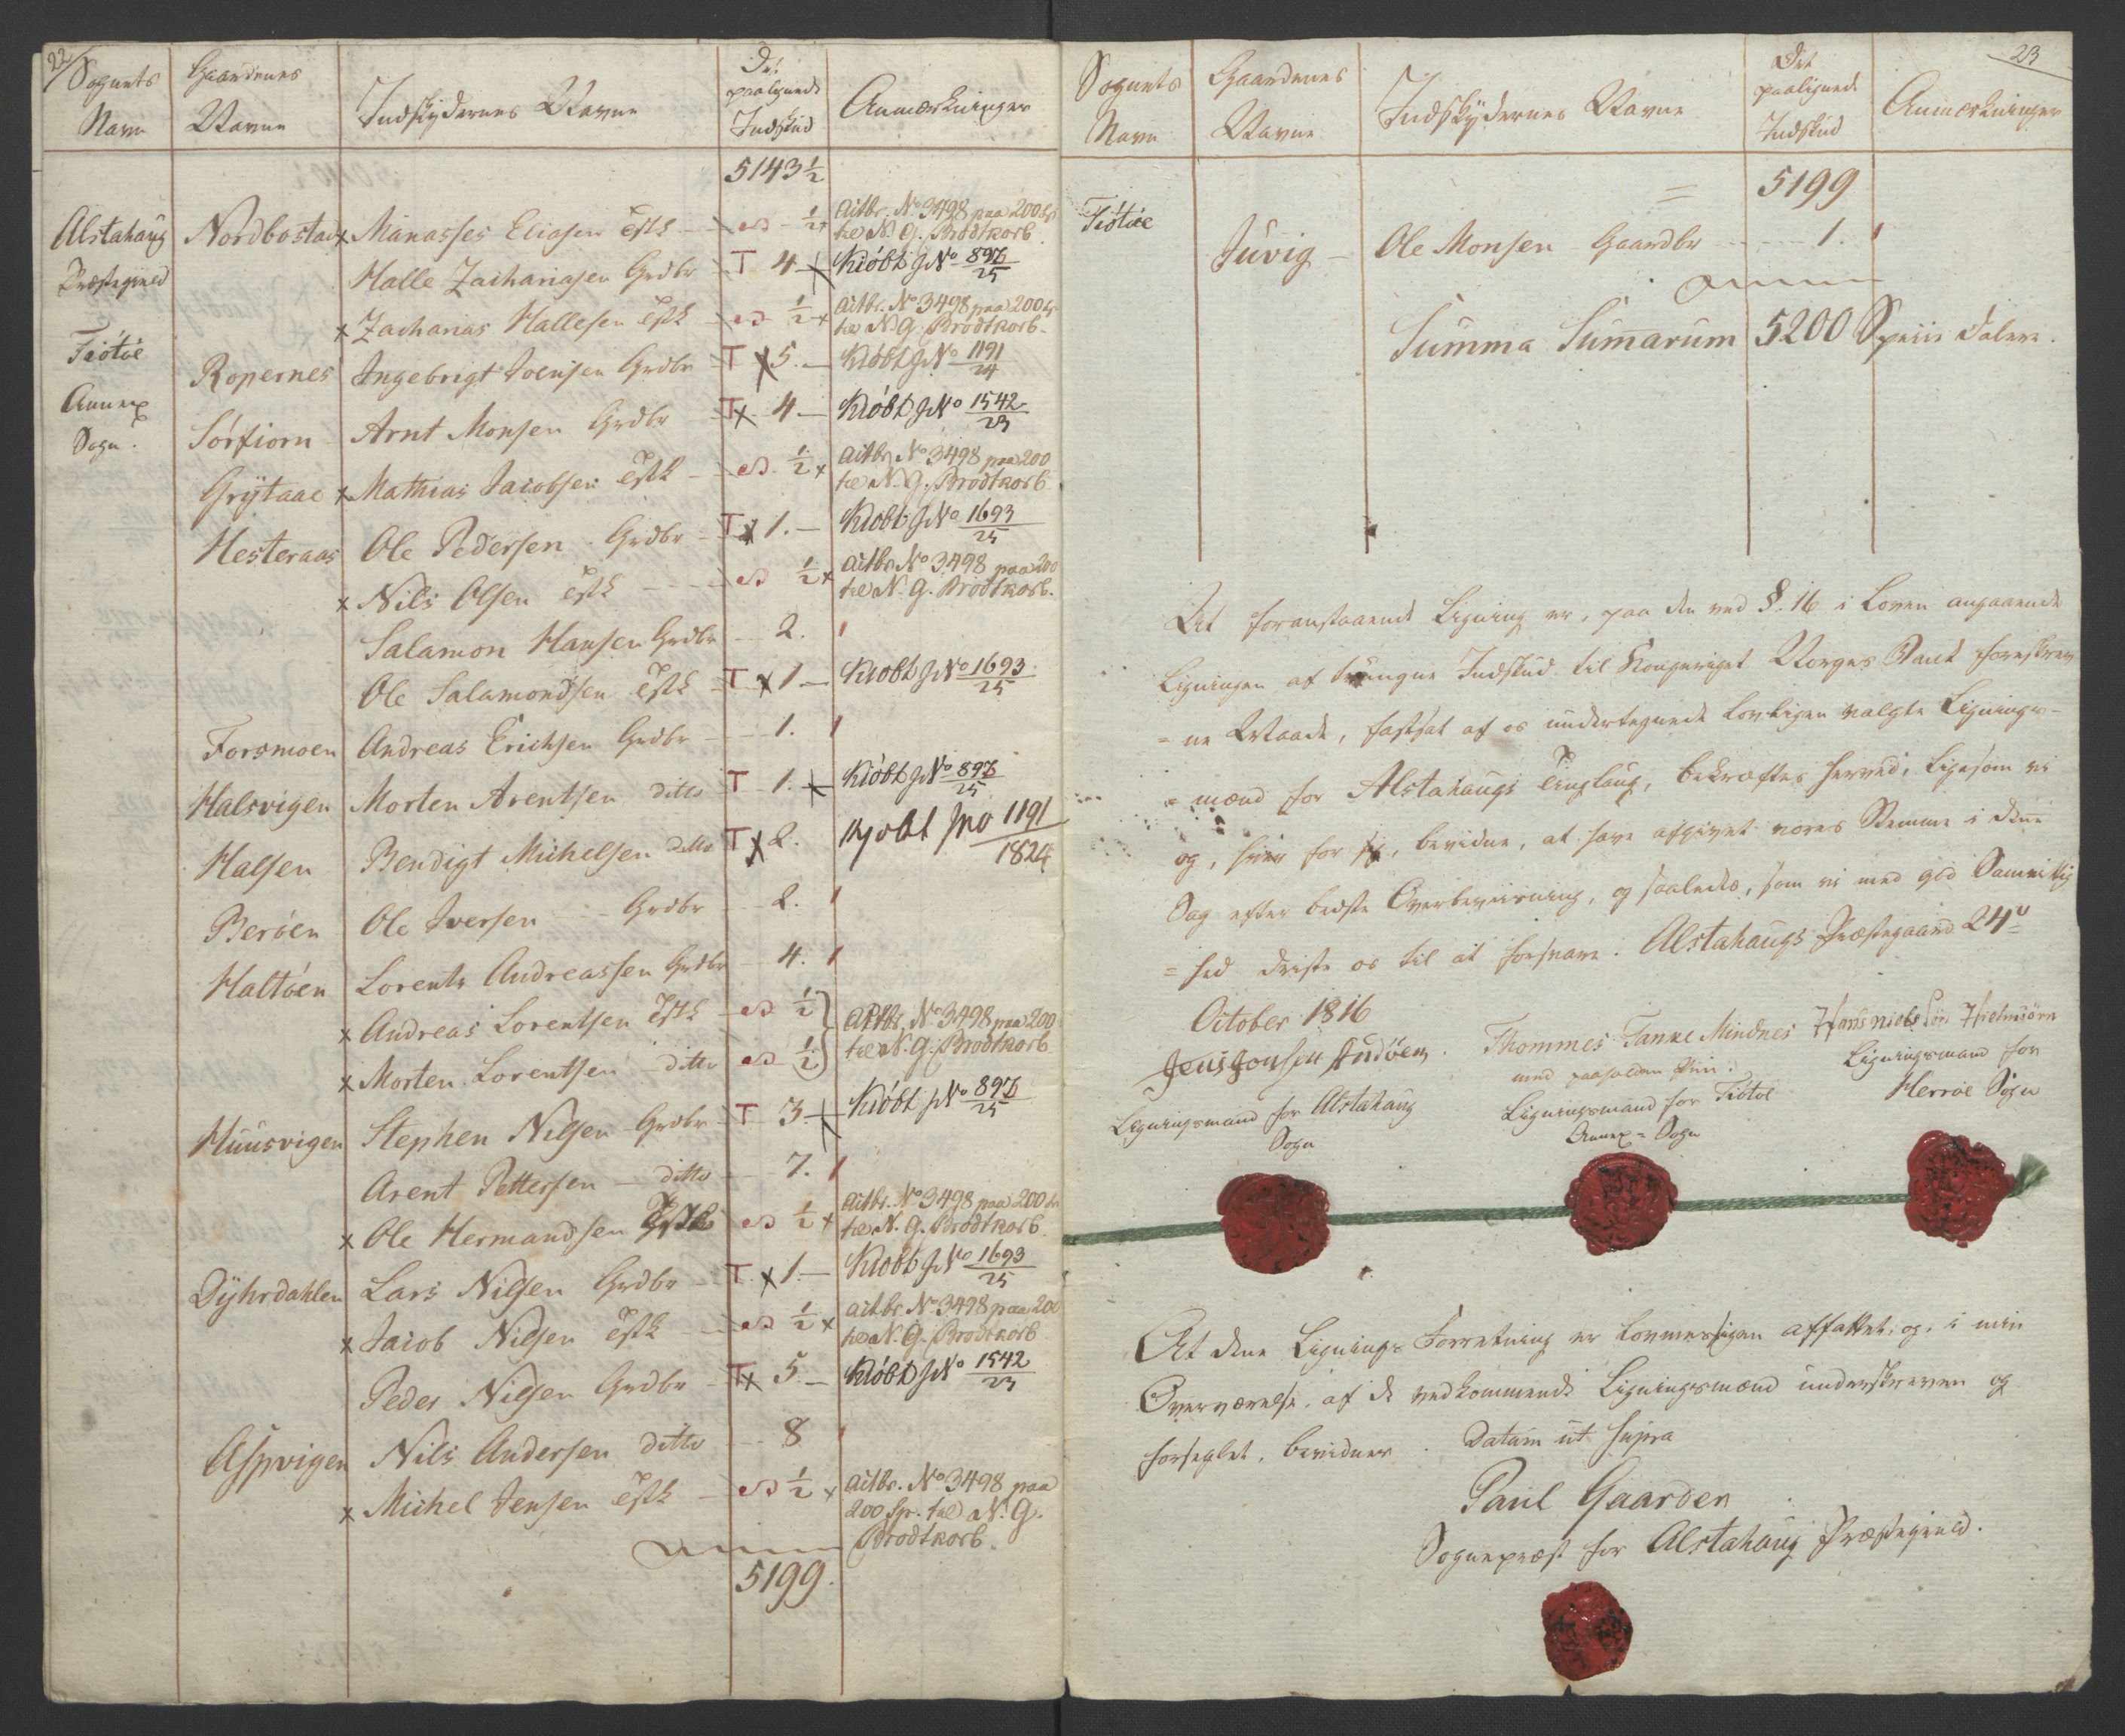 22
Sognets Navn | Gaardenes Navne | Indskydernes Navne | Det paalignede Indskud | Anmærkninger
5143 ½
Alstahaug Præstegield | Nordbostad | x Manasses Eliasen Estk | ½ x | Actbr. No 3498 paa 200 Sp. til N. G. Brodtkorb.
Halle Zachariasen Grdbr | T 4 | Kiøbt J No 897/25
x Zacharias Hallesen Estk | ½ x | Actbr. No 3498 paa 200 Sp. til N. G. Brodtkorb.
Tiøtøe Annex Sogn. | Ropernes | Ingebrigt Joensen Grdbr | T x 5. | Kiøbt J No 1191/24
Sørfiorn | Arnt Monsen Grdbr | T x 4 | Kiøbt J No 1542/23
Grÿtaae | x Mathias Jacobsen Estk | ½ x | Actbr No 3498 paa 200 til N. G. Brodtkorb
Hesteraas | Ole Pedersen Grdbr | T x 1. | Kiøbt J No 1693/25
x Nils Olsen Estk | ½ x | Actbr No 3498 paa 200 til N. G. Brodtkorb.
Salamon Hansen Grdbr | 2.
Ole Salamonsen Estk | T x 1 | Kiøbt J No 1693/25
Forsmoen | Andreas Erichsen Grdbr | 1.
Halsvigen | Morten Arentsen ditto | T 1. | Kiøbt J No 897/25
Halsen | Bendigt Michelsen ditto | T x 2. | Kjøbt J No 1191/1824
Berøen | Ole Iversen Grdbr | 2.
Haltøen | Lorents Andreassen Grdbr | 4.
x Andreas Lorentsen Estk | ½ | Actbr. No 3498 paa 200
x Morten Lorentsen ditto | ½ | til N. G. Brodtkorb
Huusvigen | Stephen Nilsen Grdbr | T 3 | Kiøbt J No 897/25
Arent Pettersen ditto | 7.
x Ole Hermandsen Estk | ½ x | Actbr. No 3498 paa 200 Sp. til N. G. Brodtkorb.
Dÿhrdahlen | Lars Nilsen Grdbr | T x 1. | Kiøbt J No 1693/25
x Jacob Nilsen Estk | ½ x | Actbr. No 3498 paa 200 til N. G. Brodtkorb
Peder Nilsen Grdbr | T x 5. | Kiøbt J No 1542/23
Aspvigen | Nils Andersen ditto | 8
x Michel Jensen Estk | ½ x | Actbr. No 3498 paa 200 Spr. til N. G. Brodtkorb.
5199.
23
Sognets Navn | Gaardenes Navne | Indskydernes Navne | Det paalignede Indskud | Anmærkninger
= 5199
Tiøtøe | Juvig | Ole Monsen Gaardbr | 1.
Summa Sumarum 5200 Specie Daler.
At foranstaaende Ligning er, paa den ved §. 16 i Loven angaaende
Ligningen af tvungne Indskud til Kongeriget Norges Bank foreskrev
= ne Maade, fastsat af os undertegnede lovligen valgte Lignings-
= mænd for Alstahaugs Tinglaug, bekræftes herved, ligesom vi
og, hver for sig, bevidne, at have afgivet vores Stemme i denne
Sag efter bedste Overbeviisning, og saaledes, som vi med god Samvittig
= hed driste os til at forsvare. Alstahaugs Præstegaard 24de
October 1816
Jens Jonsen Andøen. Thommes Tanke Mindnes Hans
med paaholden Pen. Ligningsmand for
Ligningsmand for Alstahaug Ligningsmand for Tiøtøe Herrøe Sogn
Sogn Annex-Sogn
At denne Lignings Forretning er lovmessigen affattet, og, i min
Overværelse, af de vedkommende Ligningsmænd underskreven og
forseglet, bevidner. Datum ut supra
Paul Gaarder
Sognepræst for Alstahaug Præstegield.